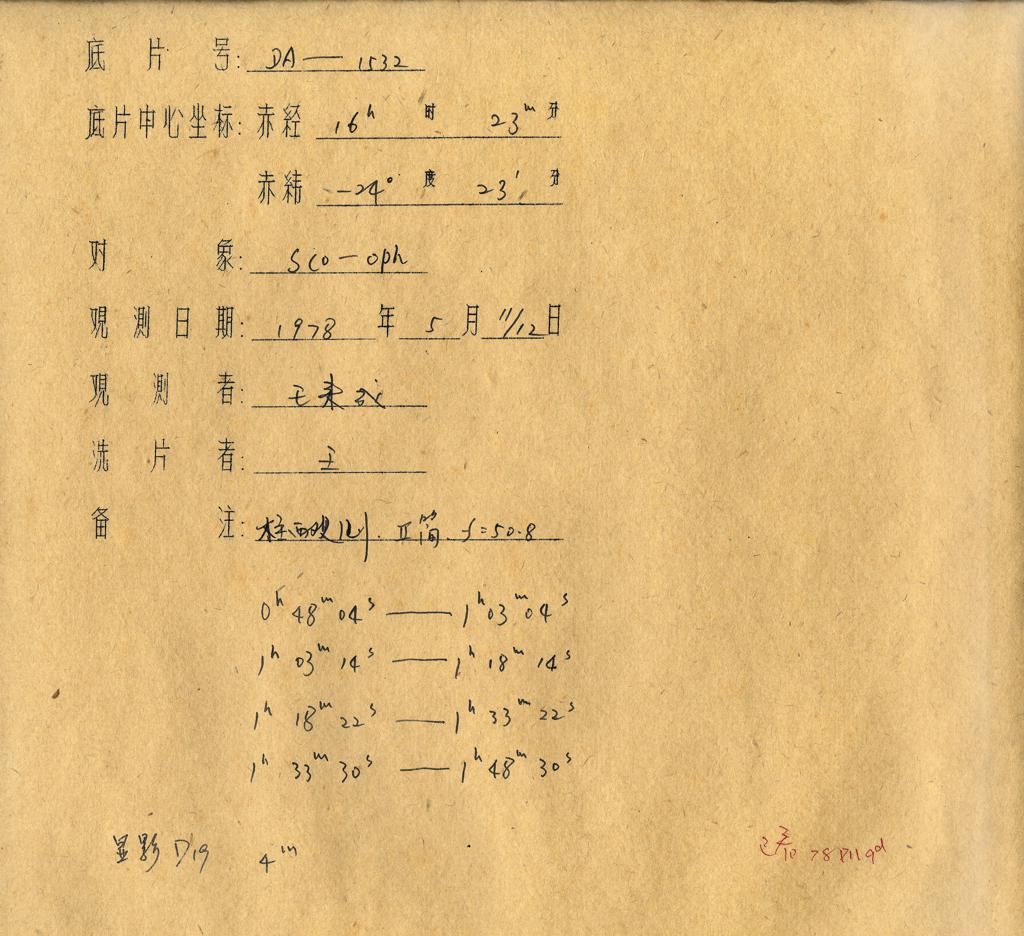 底片号: DA — 1532
底片中心坐标: 赤经 16ʰ 时 23ᵐ 分
赤纬 -24° 度 23′ 分
对象: Sco — Oph
观测日期: 1978 年 5 月 11/12 日
观测者: 王来
洗片者: 王
备注: II 简 f=50.8
0ʰ 48ᵐ 04ˢ — 1ʰ 03ᵐ 04ˢ
1ʰ 03ᵐ 14ˢ — 1ʰ 18ᵐ 14ˢ
1ʰ 18ᵐ 22ˢ — 1ʰ 33ᵐ 22ˢ
1ʰ 33ᵐ 30ˢ — 1ʰ 48ᵐ 30ˢ
显影 D19 4ᵐ